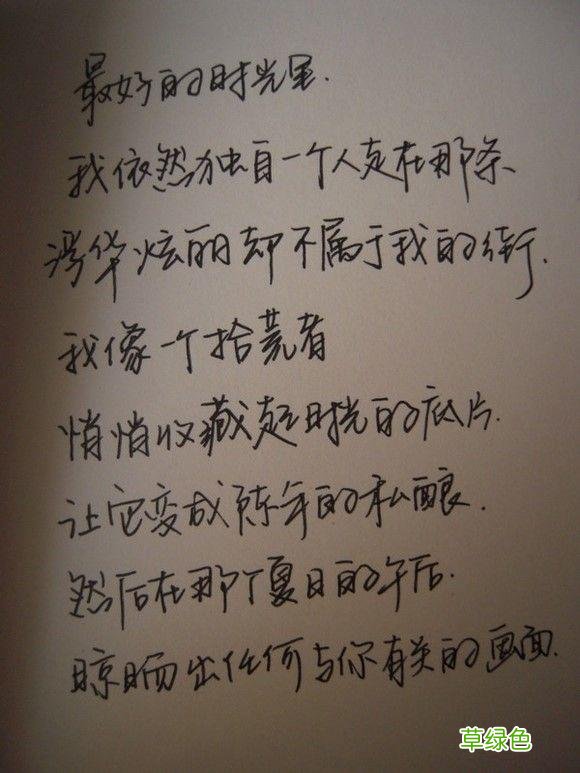 最好的时光里.
我依然独自一个人走在那条
浮华炫丽却不属于我的街.
我像一个拾荒者
悄悄收藏起时光的底片.
让它变成陈年的私酿.
然后在那个夏日的午后.
晾晒出任何与你有关的画面.
草绿色